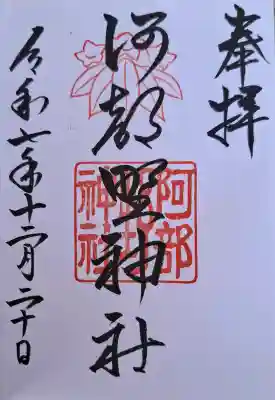 奉拝
阿部野神社
阿部野神社
令和七年十二月二十日